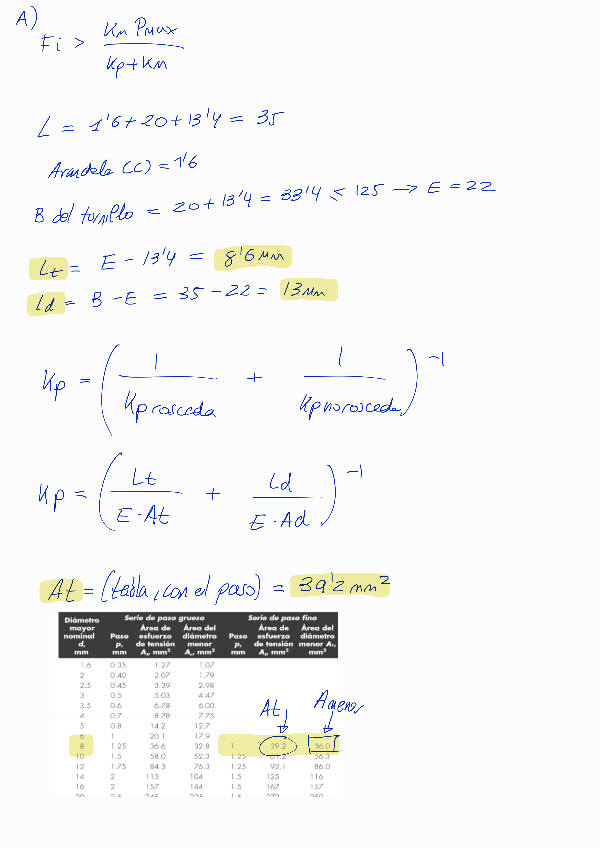 A)
Fi > Km Pmax / Kp + Km
L = 1'6 + 20 + 13'4 = 35
Arandela (C) = 1'6
B del tornillo = 20 + 13'4 = 33'4 ≤ 125 → E = 22
Lt = E - 13'4 = 8'6 mm
Ld = B - E = 35 - 22 = 13 mm
Kp = ( 1 / Kp roscada + 1 / Kp no roscada )^-1
Kp = ( Lt / E · At + Ld / E · Ad )^-1
At = (tabla, con el paso) = 39'2 mm²
Diámetro mayor nominal d, mm | Serie de paso grueso | Serie de paso fino
Paso p, mm | Área de esfuerzo de tensión At, mm² | Área del diámetro menor Ar, mm² | Paso p, mm | Área de esfuerzo de tensión At, mm² | Área del diámetro menor Ar, mm²
1.6 0.35 1.27 1.07
2 0.40 2.07 1.79
2.5 0.45 3.39 2.98
3 0.5 5.03 4.47
3.5 0.6 6.78 6.00
4 0.7 8.78 7.75
5 0.8 14.2 12.7
At A menor
6 1 20.1 17.9
8 1.25 36.6 32.8 1 39.2 36.0
10 1.5 58.0 52.3 1.25 61.2 56.3
12 1.75 84.3 76.3 1.25 92.1 86.0
14 2 115 104 1.5 125 116
16 2 157 144 1.5 167 157